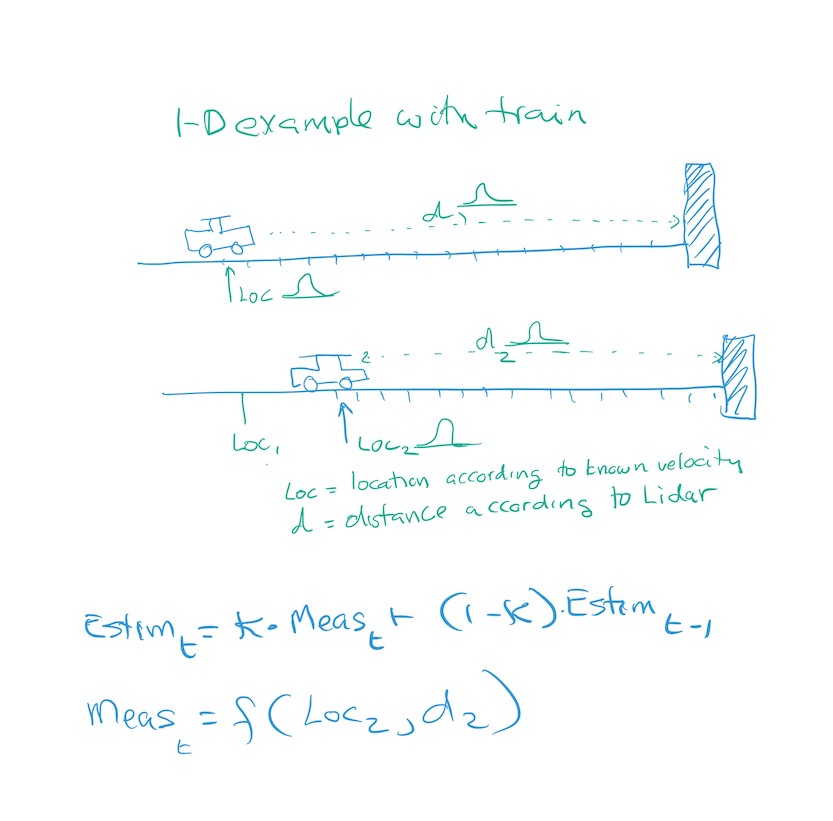 1-D example with train
d
Loc
d2
Loc1
Loc2
Loc = location according to known velocity
d = distance according to Lidar
Estimt = K · Meast + (1-K) · Estimt-1
Meast = f(Loc2, d2)